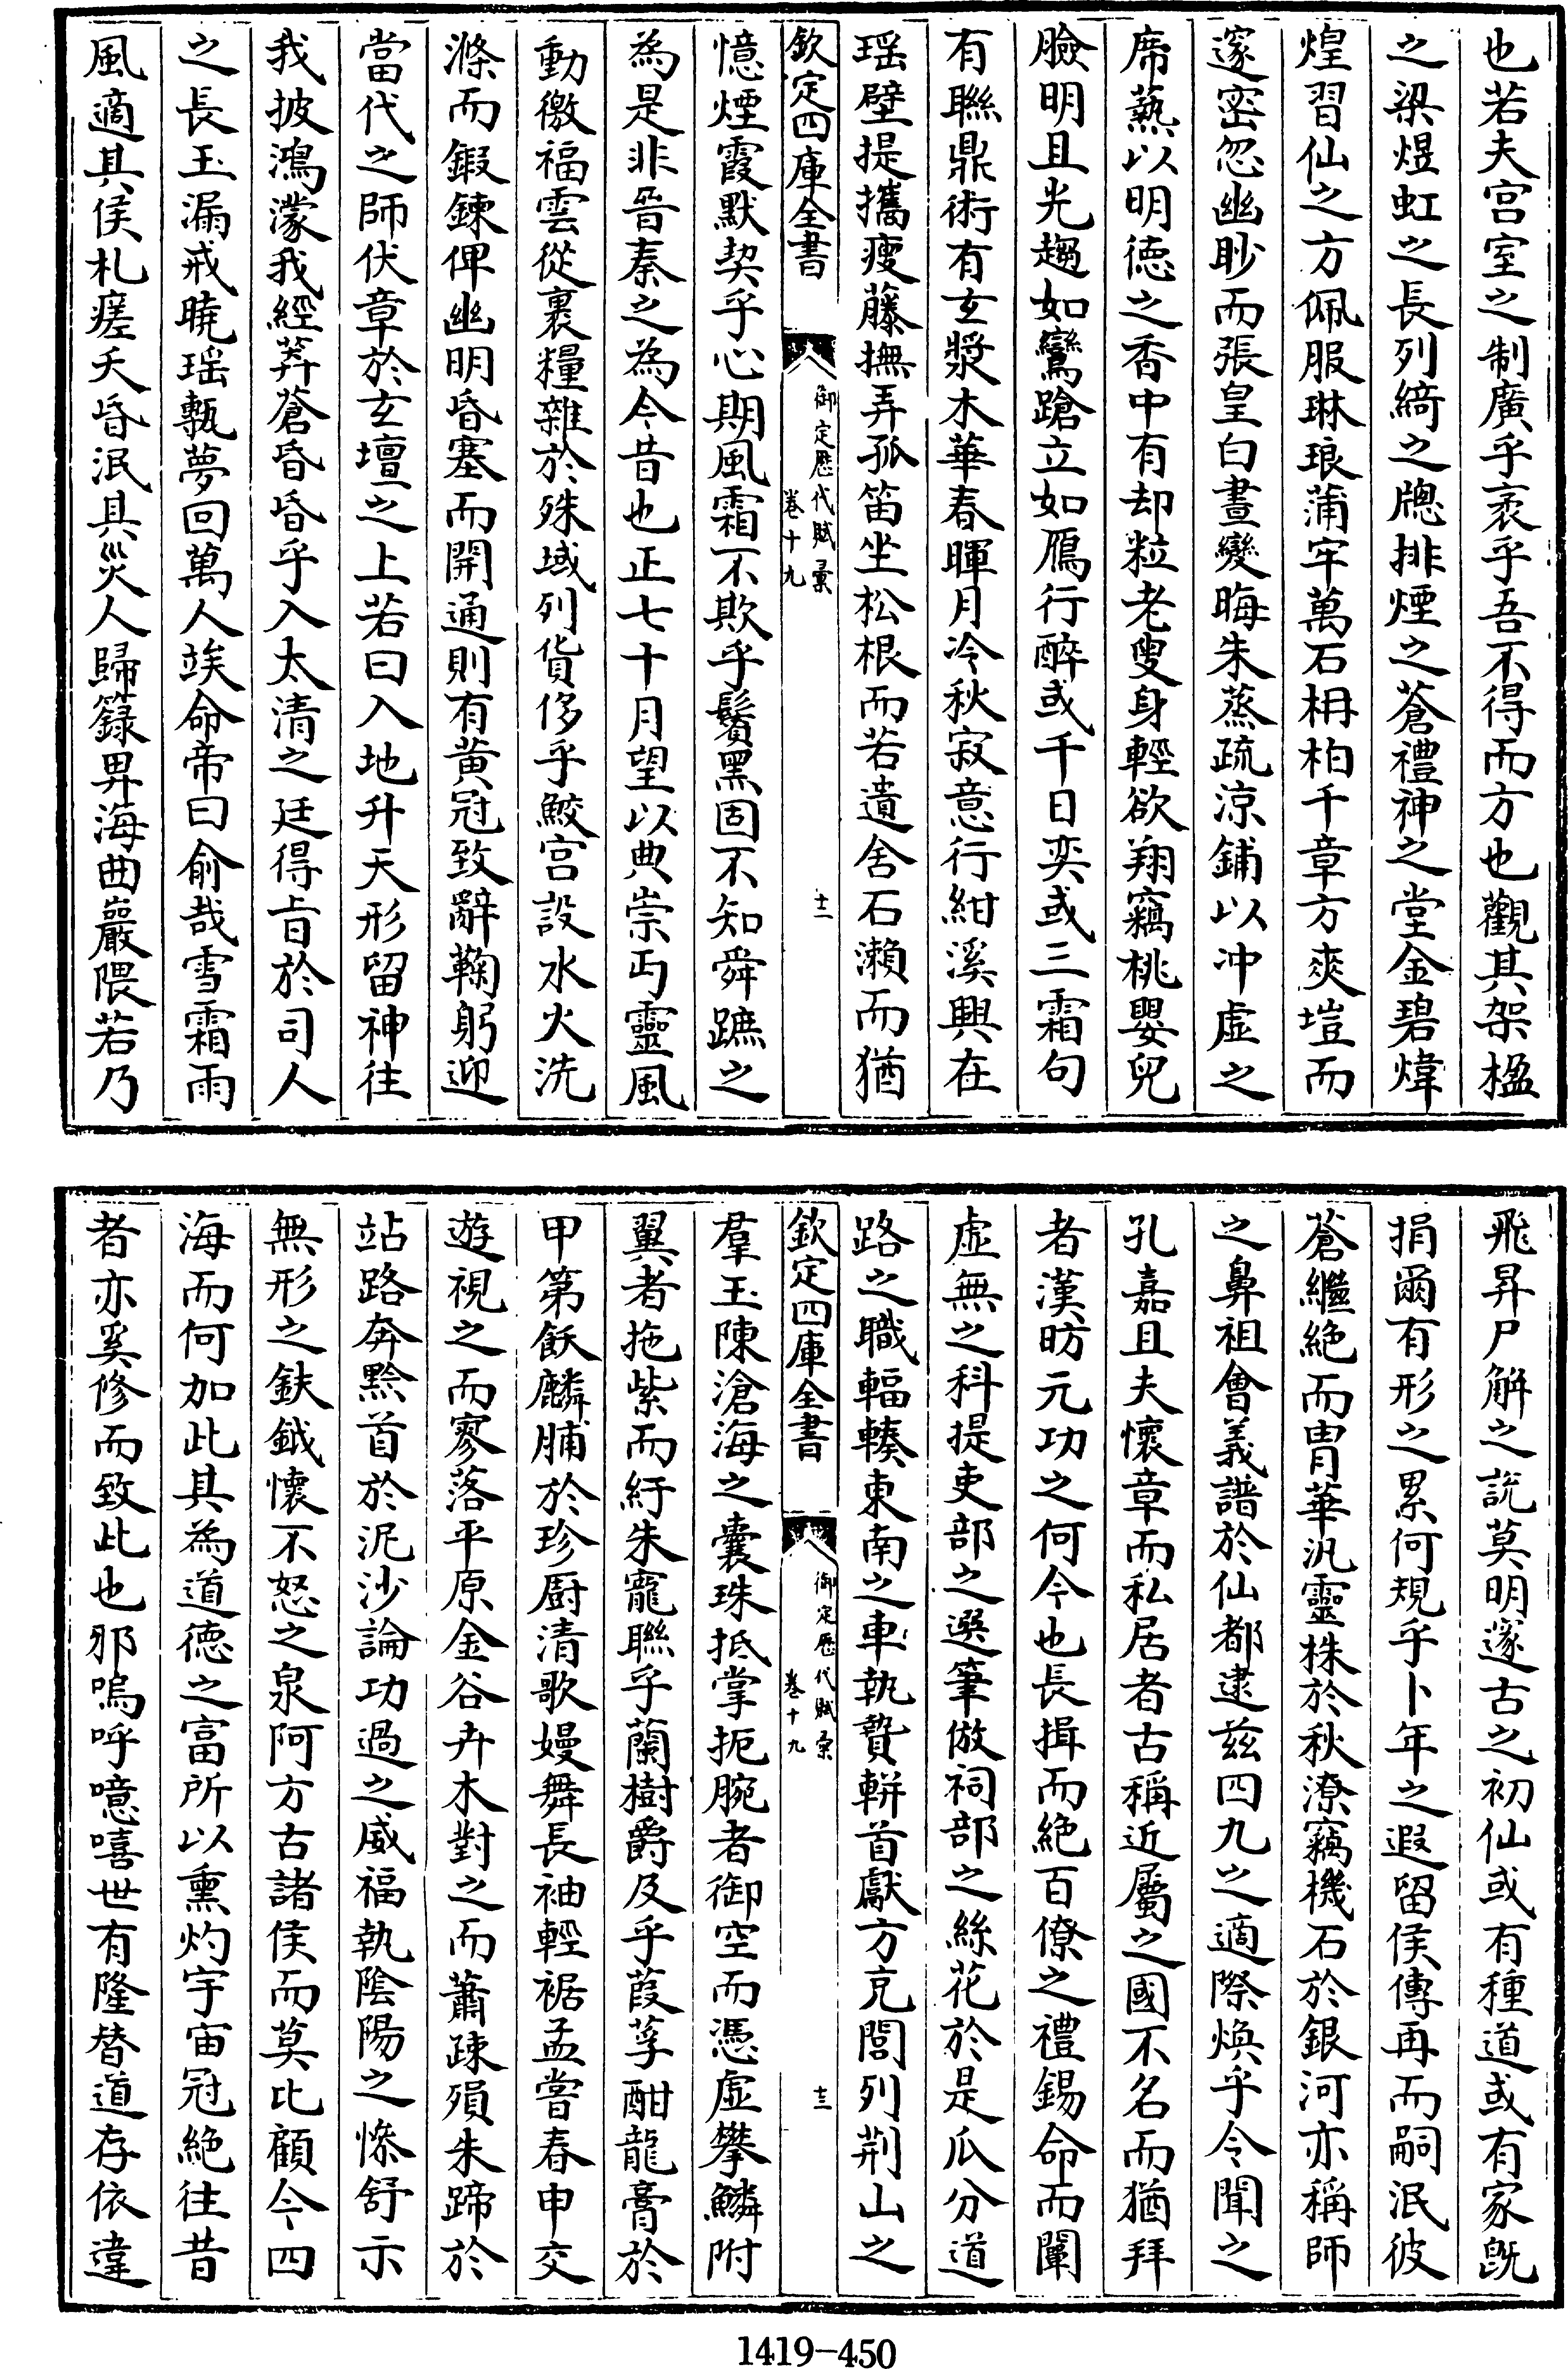 也若夫宫室之制廣乎袤乎吾不得而方也觀其架楹
之梁煜虹之長列綺之牕排煙之蒼禮神之堂金碧煒
煌習仙之方佩服琳琅蒲牢萬石枏柏千章方爽塏而
邃密忽幽眇而張皇白晝變晦朱蒸疏涼鋪以冲虚之
席爇以明徳之香中有却粒老叟身輕欲翔竊桃嬰兒
臉明且光趨如鸞蹌立如鴈行醉或千日奕或三霜句
有聯鼎術有玄漿木華春暉月冷秋寂意行紺溪興在
瑶壁提攜瘦藤撫弄孤笛坐松根而若遺舍石瀨而猶
欽定四庫全書 御定歴代賦彙 卷十九 十二
憶煙霞默契乎心期風霜不欺乎鬢黑固不知舜蹠之
為是非晉秦之為今昔也正七十月望以典崇丐靈風
動徼福雲從裹糧雜於殊域列貨侈乎鮫宫設水火洗
滌而鍜鍊俾幽明昏塞而開通則有黄冠致辭鞠躬迎
當代之師伏章於玄壇之上若曰入地升天形留神往
我披鴻濛我經莽蒼昏昏乎入太清之廷得㫖於司人
之長玉漏戒曉瑶甎夢回萬人竢命帝曰俞哉雪霜雨
風適其侯札瘥夭昏泯具災人歸籙畀海曲巖隈若乃
飛昇尸解之説莫明邃古之初仙或有種道或有家既
捐爾有形之累何規乎卜年之遐留侯傳再而嗣泯彼
蒼繼絶而胄華汎靈株於秋潦竊機石於銀河亦稱師
之鼻祖會義譜於仙都逮兹四九之適際煥乎令聞之
孔嘉且夫懷章而私居者古稱近屬之國不名而猶拜
者漢昉元功之何今也長揖而絶百僚之禮錫命而闡
虚無之科提吏部之選筆倣祠部之絲花於是瓜分道
路之職輻輳東南之車執贄軿首獻方亢閭列荆山之
欽定四庫全書 御定歴代賦彙 卷十九 十三
羣玉陳滄海之囊珠抵掌扼腕者御空而憑虚攀鱗附
翼者拖紫而紆朱寵聯乎蘭樹爵及乎葭莩酣龍膏於
甲第飫麟脯於珍厨清歌嫚舞長袖輕裾孟嘗春申交
遊視之而寥落平原金谷卉木對之而蕭疎殞朱蹄於
站路奔黔首於泥沙論功過之威福執陰陽之慘舒示
無形之鈇鉞懷不怒之泉阿方古諸侯而莫比顧今四
海而何加此其為道徳之富所以熏灼宇宙冠絶往昔
者亦奚修而致此也邪嗚呼噫嘻世有隆替道存依違
1419-450